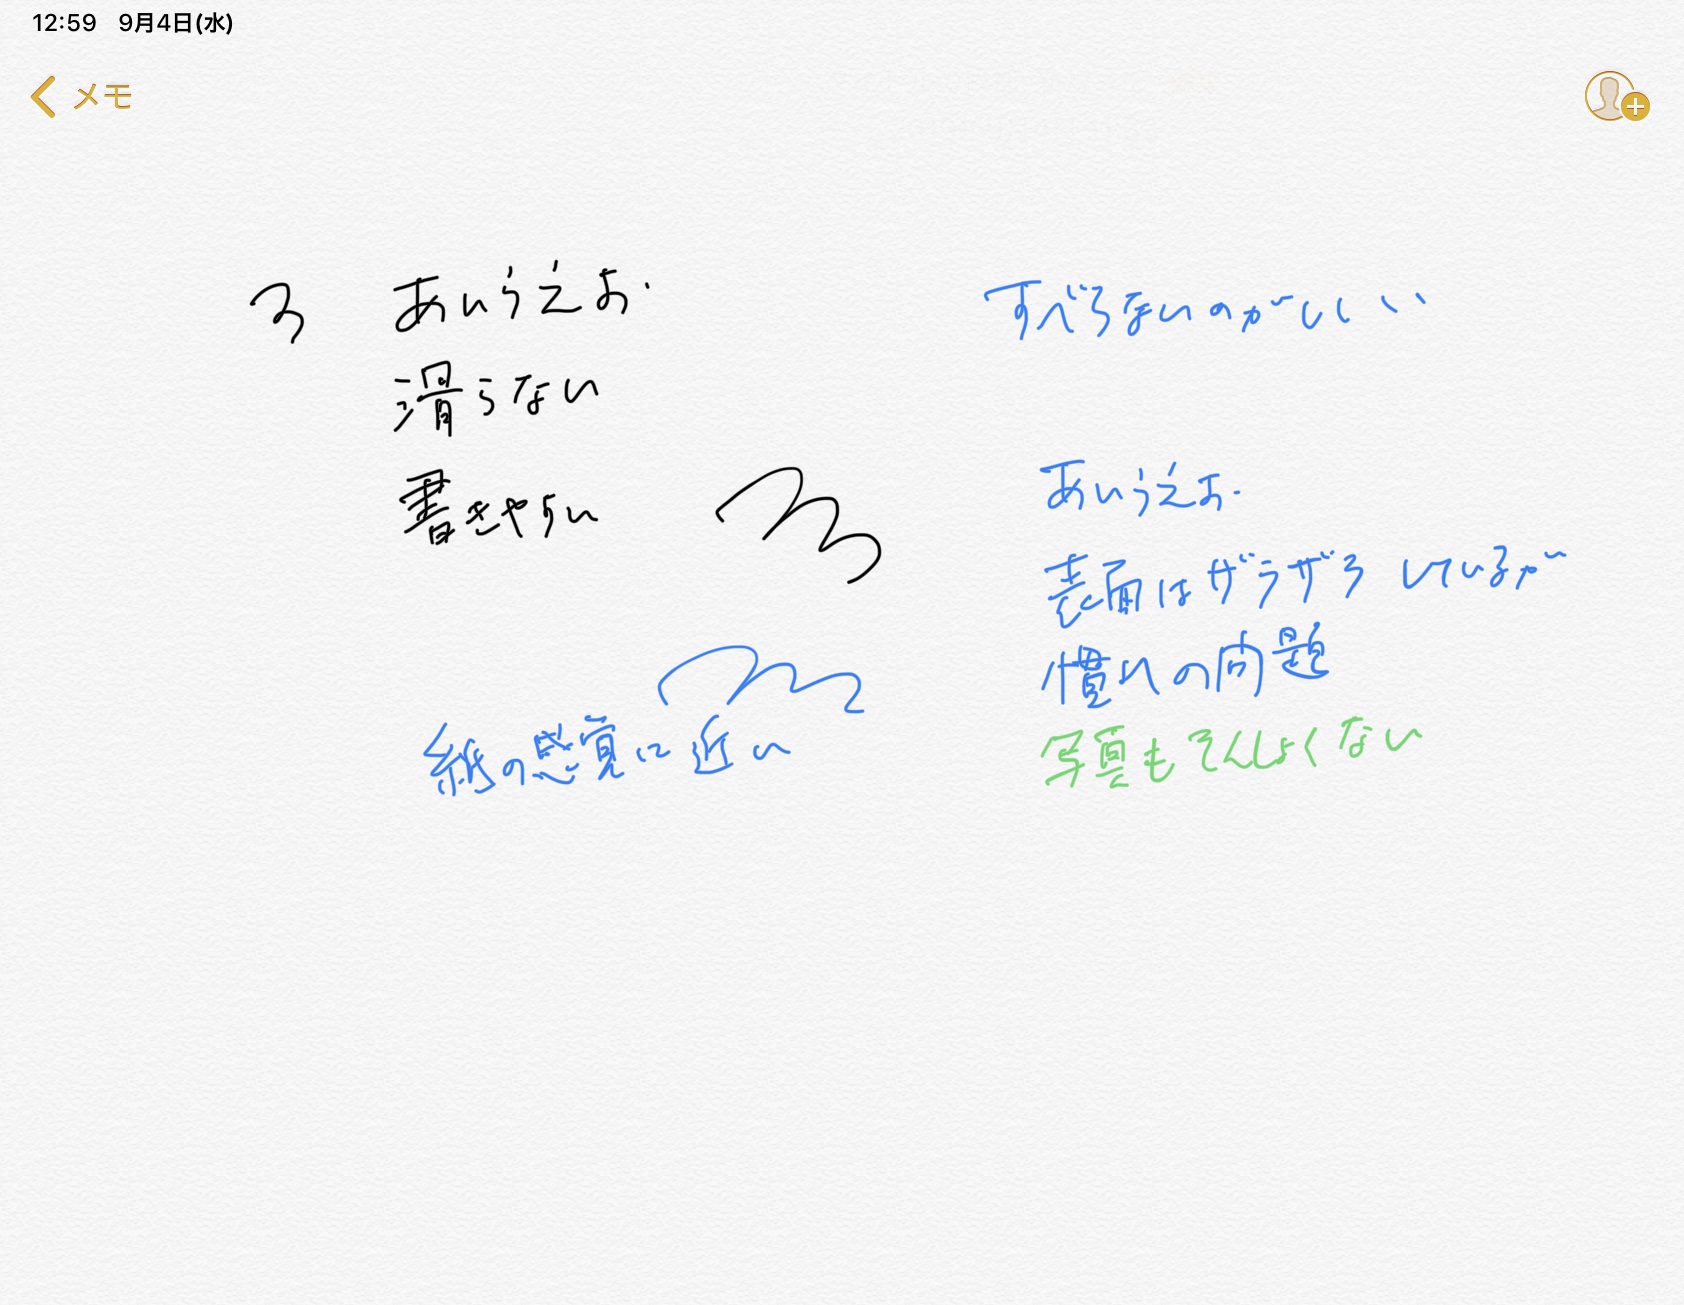 12:59 9月4日(水)
メモ
あいうえお.
滑らない
書きやすい
紙の感覚に近い
すべらないのがいい
あいうえお.
表面はザラザラしているが
慣れの問題
写真もそんしょくない